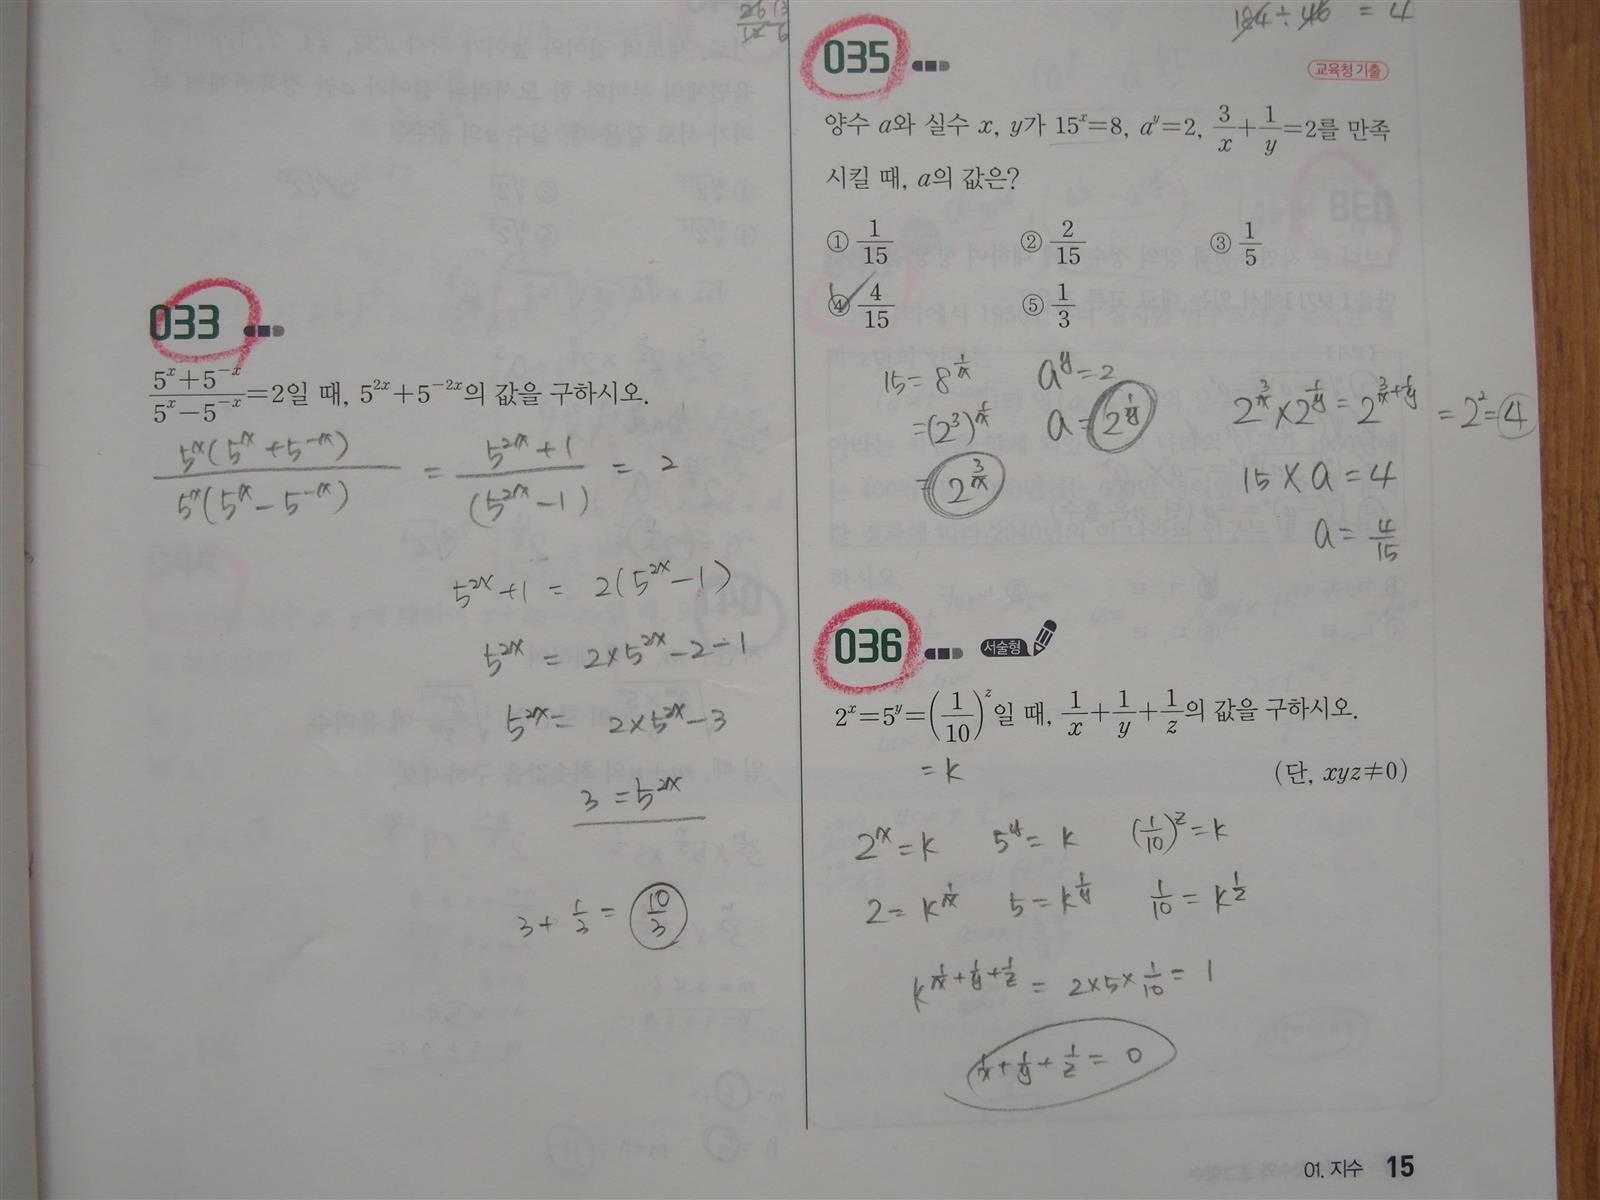 033
5^x+5^-x / 5^x-5^-x =2일 때, 5^2x+5^-2x의 값을 구하시오.
5^x(5^x+5^-x) / 5^x(5^x-5^-x) = 5^2x+1 / (5^2x-1) = 2
5^2x+1 = 2(5^2x-1)
5^2x = 2×5^2x-2-1
5^2x = 2×5^2x-3
3 = 5^2x
3+1/3 = 10/3
184÷46 = 4
035
교육청 기출
양수 a와 실수 x, y가 15^x=8, a^y=2, 3/x+1/y=2를 만족
시킬 때, a의 값은?
① 1/15 ② 2/15 ③ 1/5
④ 4/15 ⑤ 1/3
15=8^1/x a^y=2
=(2^3)^1/x a=2^1/y
=2^3/x
2^3/x×2^1/y=2^3/x+1/y =2^2=4
15×a=4
a=4/15
036 서술형
2^x=5^y=(1/10)^z일 때, 1/x+1/y+1/z의 값을 구하시오.
=k
(단, xyz≠0)
2^x=k 5^y=k (1/10)^z=k
2=k^1/x 5=k^1/y 1/10=k^1/z
k^1/x+1/y+1/z = 2×5×1/10 = 1
1/x+1/y+1/z = 0
01. 지수 15